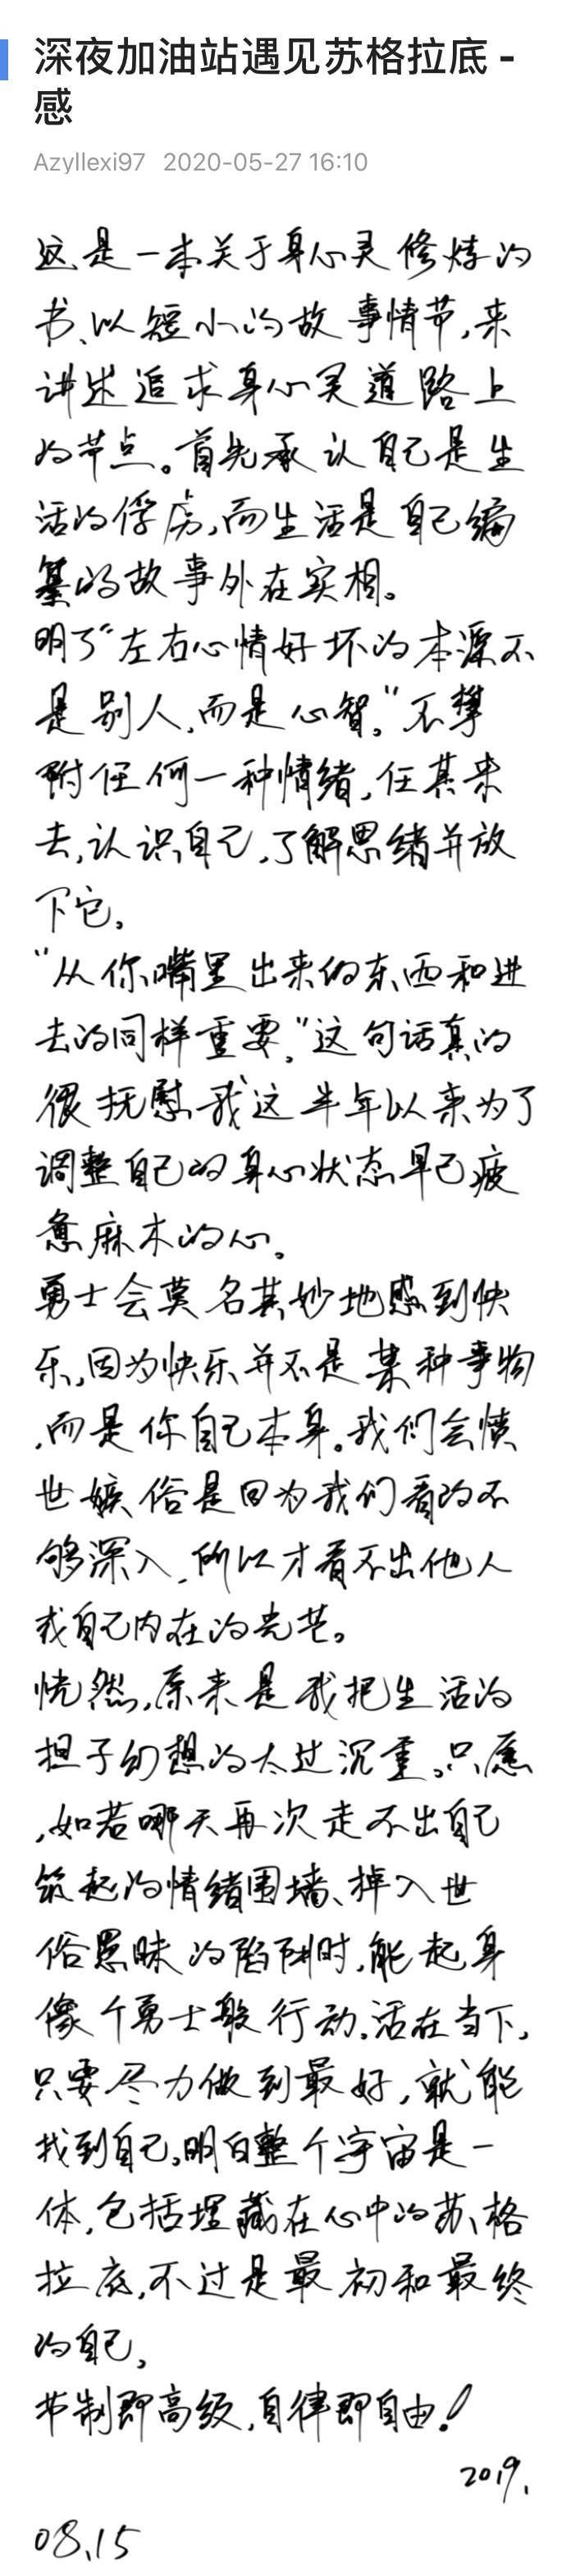 深夜加油站遇见苏格拉底 -
感
Azyllexi97 2020-05-27 16:10
这是一本关于身心灵修炼的
书、以短小的故事情节,来
讲述追求身心灵道路上
的节点。首先承认自己是生
活的俘虏,而生活是自己编
纂的故事外在实相。
明了“左右心情好坏的本源不
是别人,而是心智。”不攀
附任何一种情绪,任其来
去,认识自己,了解思绪并放
下它。
“从你嘴里出来的东西和进
去的同样重要。”这句话真的
很抚慰我这半年以来为了
调整自己的身心状态早已疲
惫麻木的心。
勇士会莫名其妙地感到快
乐,因为快乐并不是某种事物
,而是你自己本身。我们会愤
世嫉俗是因为我们看的不
够深入,所以才看不出他人
或自己内在的光芒。
恍然,原来是我把生活的
担子幻想的太过沉重。只愿
,如若哪天再次走不出自己
筑起的情绪围墙、掉入世
俗愚昧的陷阱时,能起身
像个勇士般行动。活在当下,
只要尽力做到最好,就能
找到自己。明白整个宇宙是一
体,包括埋藏在心中的苏格
拉底,不过是最初和最终
的自己。
节制即高级,自律即自由!
2019.
08.15